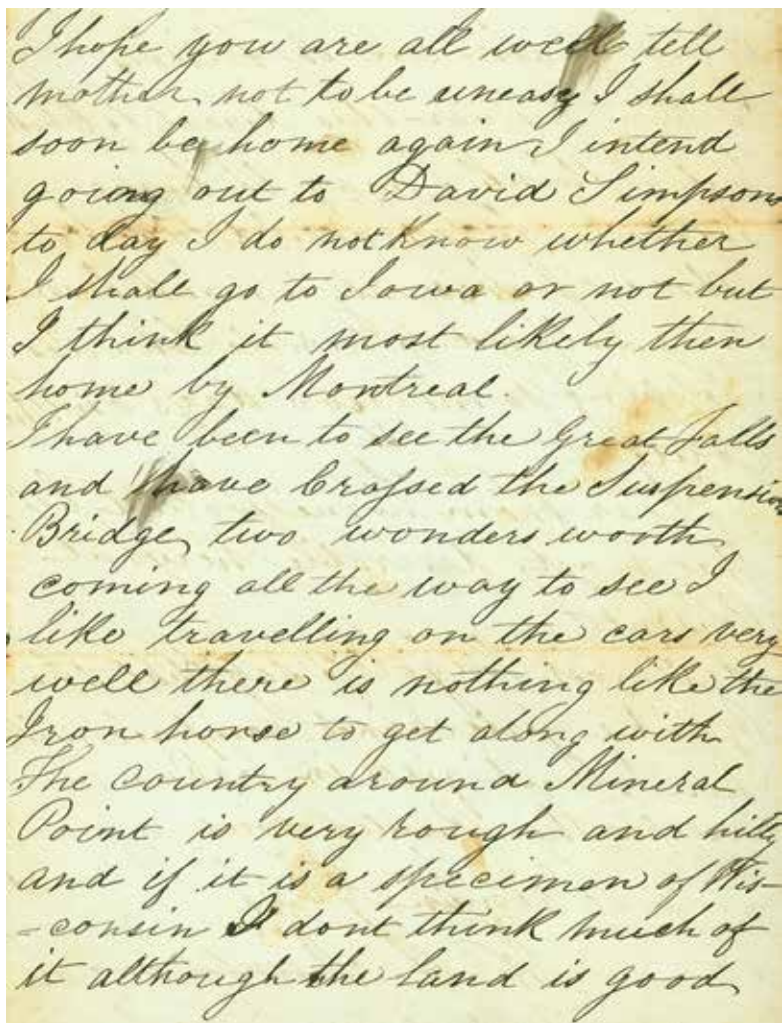 I hope you are all well tell
mother not to be uneasy I shall
soon be home again I intend
going out to David Simpsons
to day I do not know whether
I shall go to Iowa or not but
I think it most likely then
home by Montreal.
I have been to see the Great Falls
and I have Crossed the Suspension
Bridge two wonders worth
coming all the way to see I
like travelling on the cars very
well there is nothing like the
Iron horse to get along with
The Country around Mineral
Point is very rough and hilly
and if it is a specimen of Wis-
-consin I dont think much of
it although the land is good